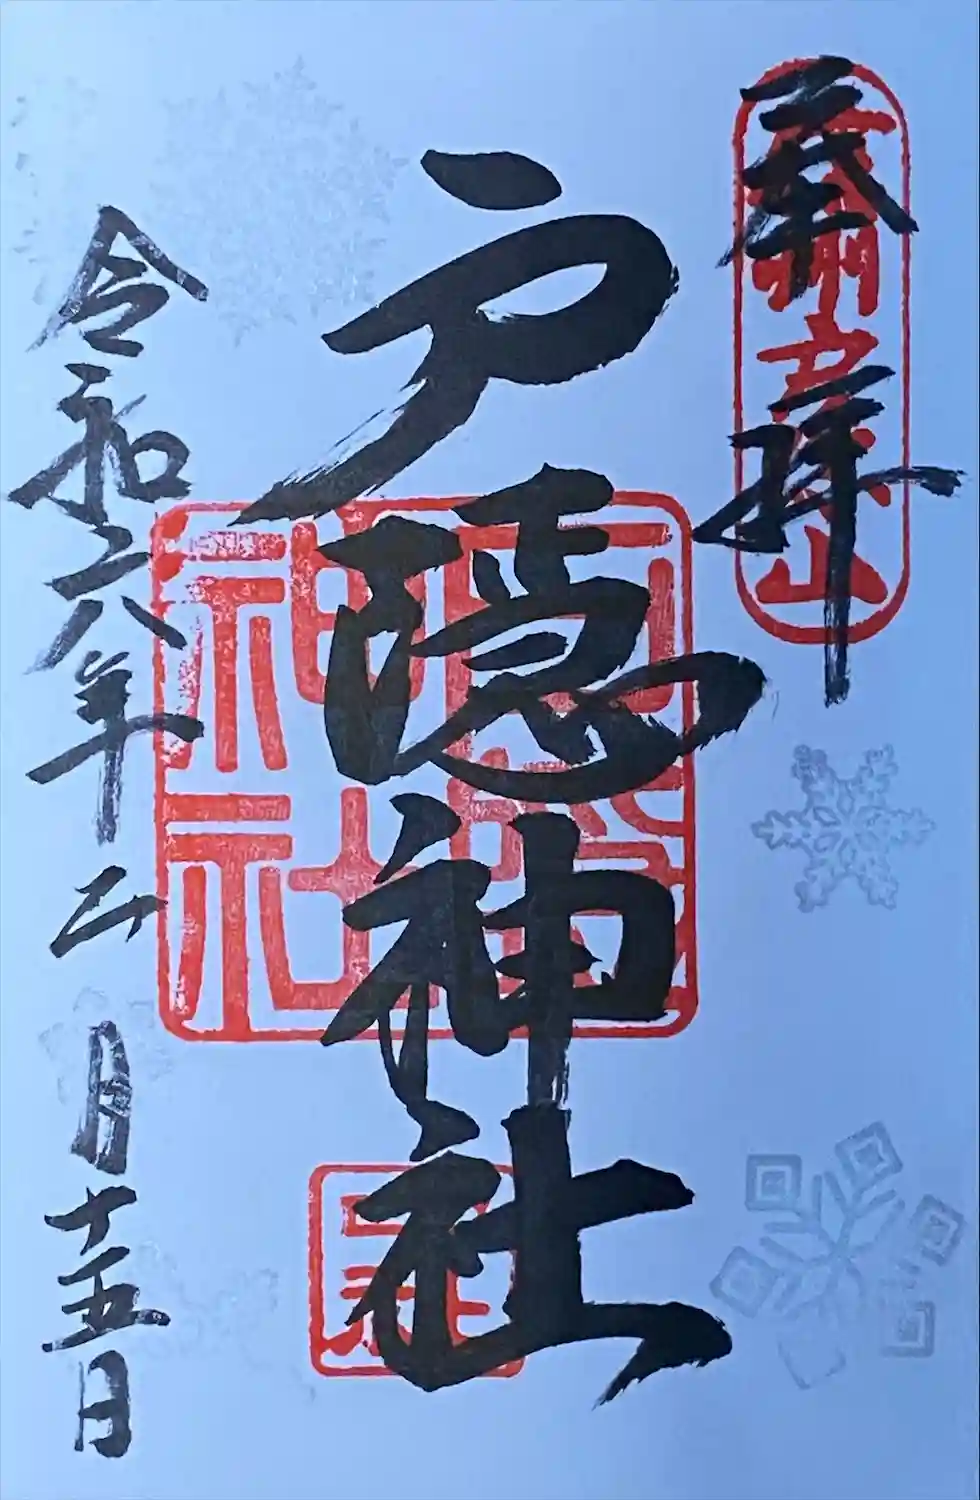 奉拝
戸隠神社
戸隠
神社
令和六年二月十五日